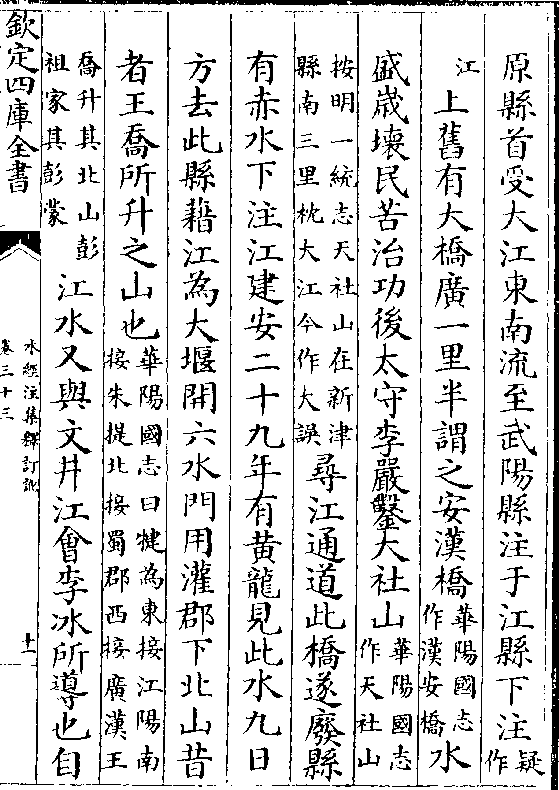 原縣首受大江東南流至武陽縣注于江縣下注疑作
江上舊有大橋廣一里半謂之安漢橋華陽國志作漢安橋水
盛歲壞民苦治功後太守李嚴鑿大社山華陽國志作天社山
按明一統志天社山在新津縣南三里枕大江今作大誤尋江通道此橋遂廢縣
有赤水下注江建安二十九年有黄龍見此水九日
方去此縣藉江為大堰開六水門用灌郡下北山昔
者王喬所升之山也華陽國志曰犍為東接江陽南接朱提北接蜀郡西接廣漢王
喬升其北山彭祖家其彭蒙江水又與文井江會李冰所導也自
欽定四庫全書
水經注集釋訂訛
卷三十三
十一